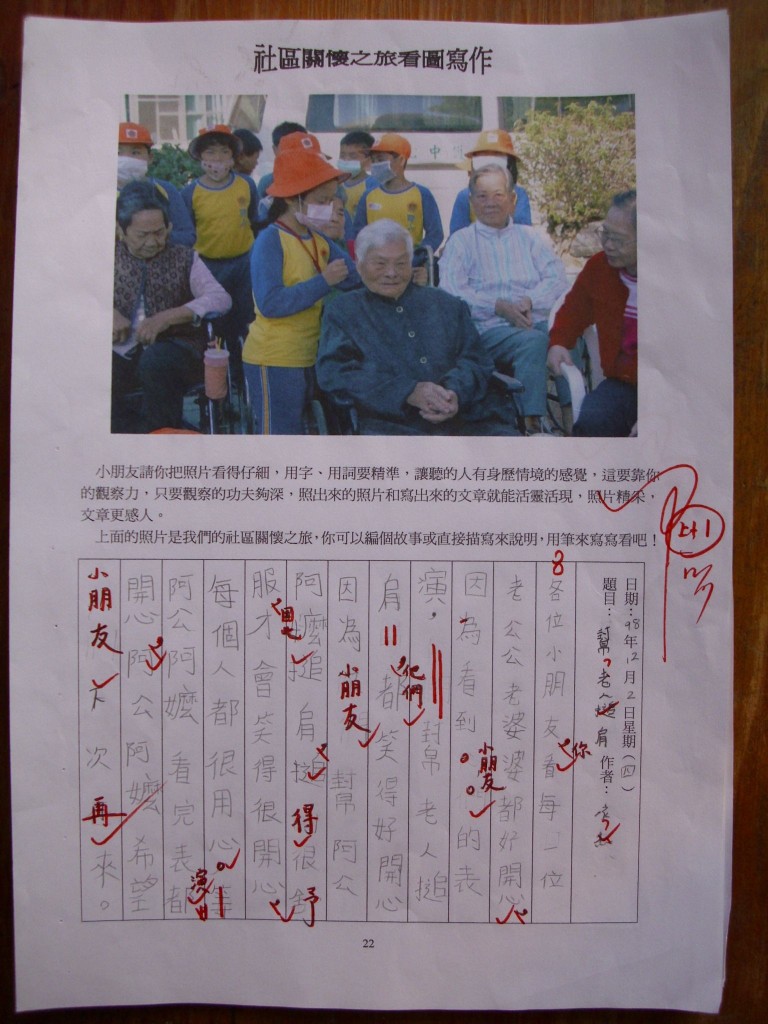 社區關懷之旅看圖寫作
中
小朋友請你把照片看得仔細，用字、用詞要精準，讓聽的人有身歷情境的感覺，這要靠你
的觀察力，只要觀察的功夫夠深，照出來的照片和寫出來的文章就能活靈活現，照片精采，
文章更感人。
上面的照片是我們的社區關懷之旅，你可以編個故事或直接描寫來說明，用筆來寫寫看吧！
日期：98年12月2日星期（四）
題目：幫老人搥肩 作者：
8
各位小朋友看每一位
你
老公公老婆婆都好開心
因為看到 的表
小朋友
演， 幫老人搥
肩 都笑得好開心
他們
因為 幫阿公
小朋友
阿嬤搥肩搥 很舒
得
服才會笑得很開心
予
每個人都很用心。等
阿公阿嬤看完表都
演
開心阿公阿嬤希望
小朋友下次 來。
再
22